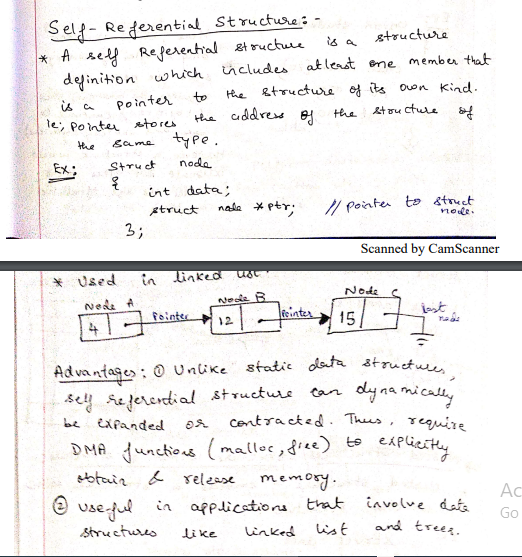 Self-Referential Structure:-
* A self Referential structure is a structure
definition which includes atleast one member that
is a pointer to the structure of its own kind.
ie; pointer stores the address of the structure of
the same type.
Ex: struct node
{
int data;
struct node *ptr; // pointer to struct
node.
};
Scanned by CamScanner
* Used in linked list.
Node A Node B Node C
4 Pointer 12 Pointer 15 last
node
Advantages: ① Unlike static data structures,
self referential structure can dynamically
be expanded or contracted. Thus, require
DMA functions (malloc, free) to explicitly
obtain & release memory.
② useful in applications that involve data
structures like linked list and trees.
Ac
Go